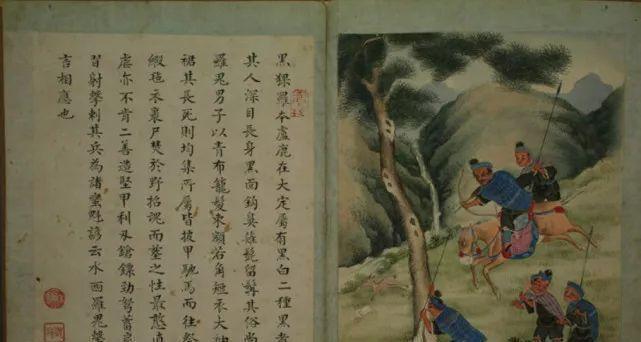 黑猓羅本盧鹿在大定屬有黑白二種黑者
其人深目長身黑面鉤鼻薙髭留髯其俗尚
羅鬼男子以青布籠髮束額若角短衣大袖
裙其長死則均集所屬皆披甲馳馬而往祭
緞毡衣裹尸焚於野招魂而葬之性最憨直
虐亦不肯二善造堅甲利刃鎗鏢勁弩蓄良
習射擊刺其兵為諸蠻魁諺云水西羅鬼
言相應也